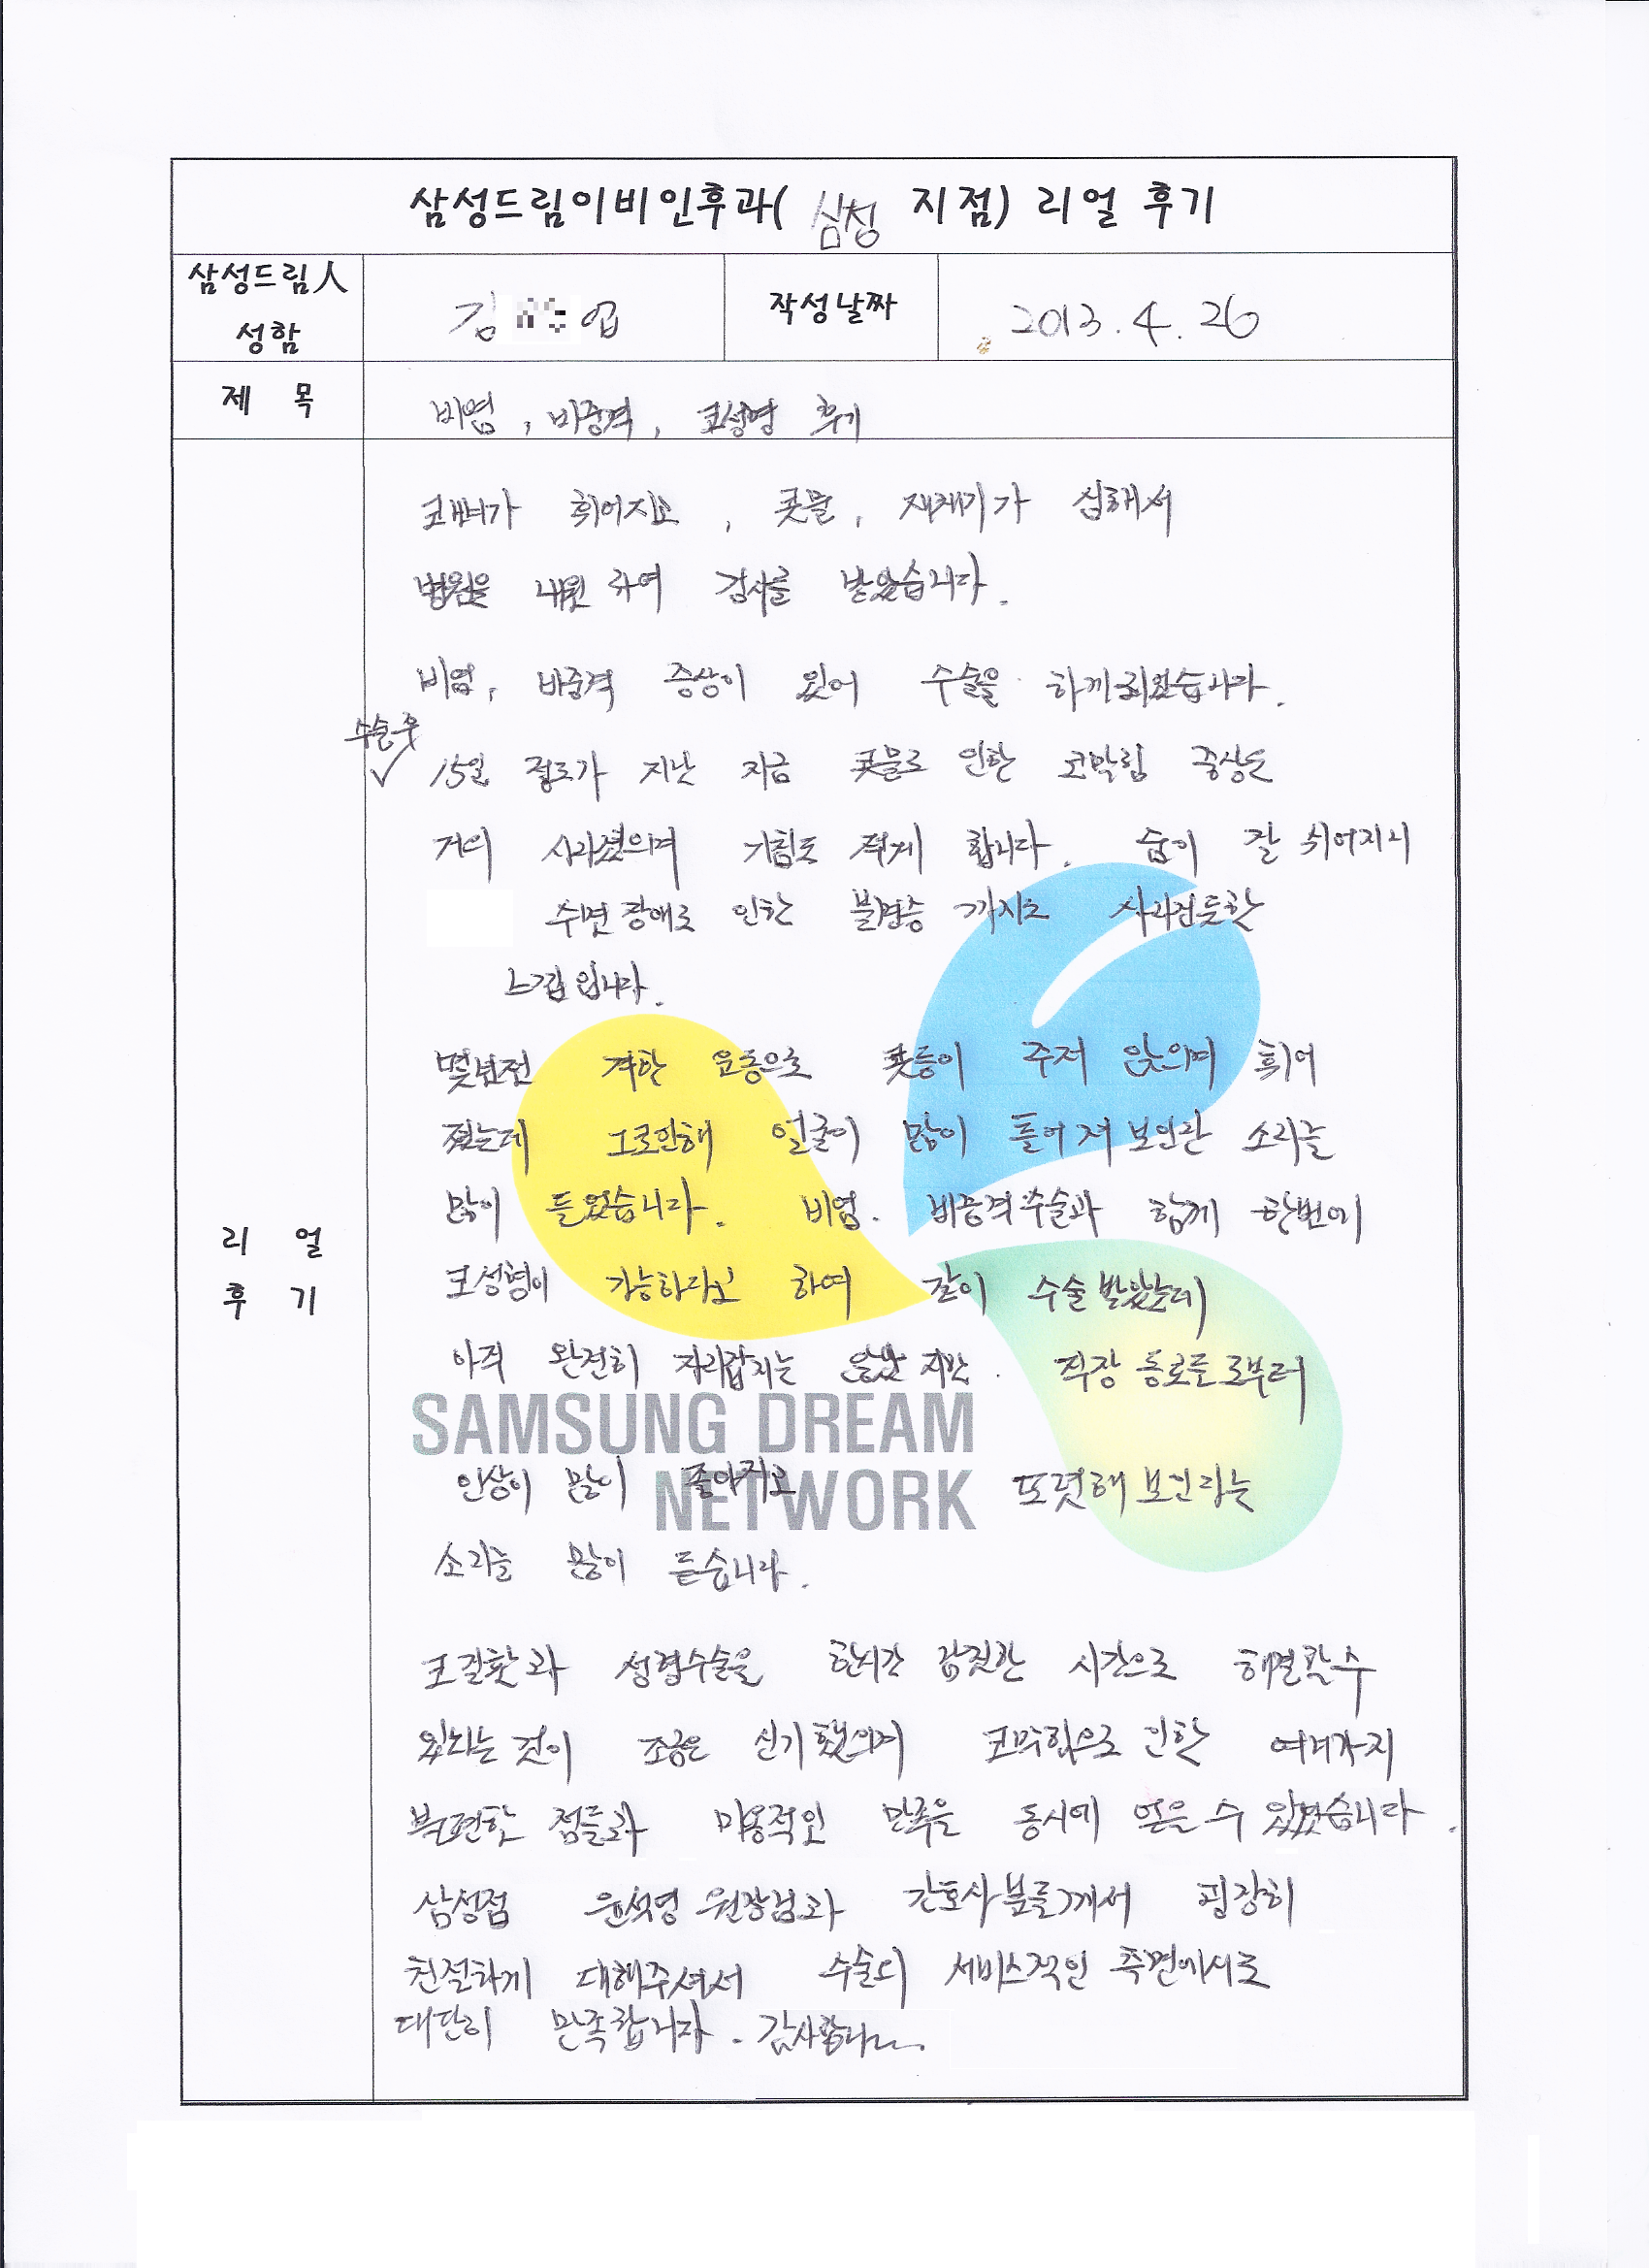 삼성드림이비인후과( 삼성 지점) 리얼 후기
삼성드림人
성함
김 엽
작성날짜
2013. 4. 26
제 목
비염, 비중격, 코성형 후기
리 얼
후 기
코뼈가 휘어지고, 콧물, 재채기가 심해서
병원을 내원하여 검사를 받았습니다.
비염, 비중격 증상이 있어 수술을 하게되었습니다.
수술후
✓ 15일 정도가 지난 지금 콧물로 인한 코막힘 증상도
거의 사라졌으며 기침도 적게 합니다. 숨이 잘 쉬어지니
수면장애로 인한 불면증 까지도 사라진듯한
느낌입니다.
몇년전 격한 운동으로 콧등이 주저 앉으며 휘어
졌는데 그로인해 얼굴이 많이 틀어져 보인단 소리를
많이 들었습니다. 비염. 비중격수술과 함께 한번에
코성형이 가능하다고 하여 같이 수술받았는데
아직 완전히 자리잡지는 않았지만. 직장 동료들로부터
인상이 많이 좋아지고 또렷해 보인다는
소리를 많이 듣습니다.
SAMSUNG DREAM
NETWORK
코질환과 성형수술을 한시간 남짓한 시간으로 해결할수
있다는 것이 조금은 신기했으며 코막힘으로 인한 여러가지
불편한 점들과 미용적인 만족을 동시에 얻을 수 있었습니다.
삼성점 윤석영 원장님과 간호사분들께서 굉장히
친절하게 대해주셔서 수술외 서비스적인 측면에서도
대단히 만족합니다. 감사합니다.